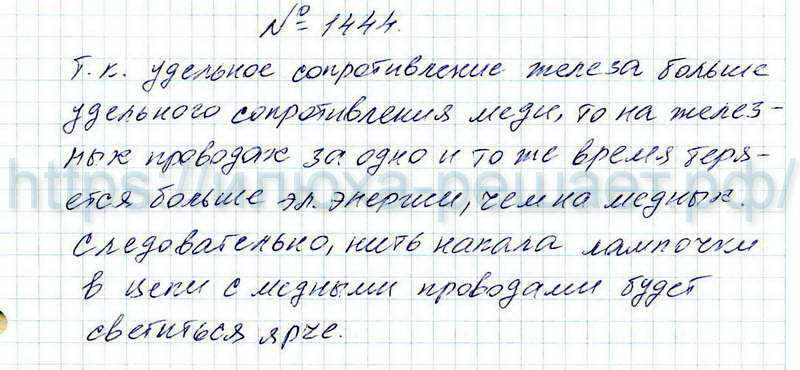 № 1444.
Т.к. удельное сопротивление железа больше
удельного сопротивления меди, то на желез-
ных проводах за одно и то же время теря-
ется больше эл. энергии, чем на медных.
Следовательно, нить накала лампочки
в цепи с медными проводами будет
светиться ярче.